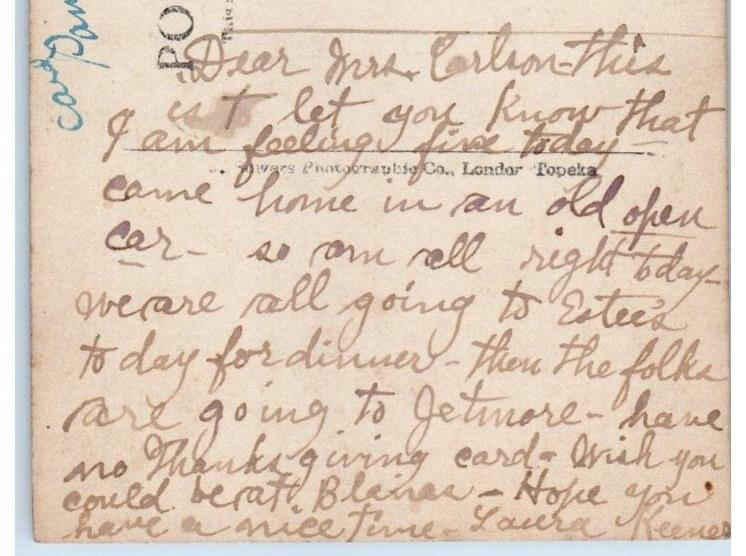 PO
Dear Mrs. Carlson - this
is T let you Know that
I am feeling fine today -
Sowers Photographic Co., London Topeka
came home in an old open
car - so am all right today -
we are all going to Estee's
to day for dinner - then the folks
are going to Jetmore - have
no Thanksgiving card - Wish you
could be at Blaines - Hope you
have a nice time - Laura Keener